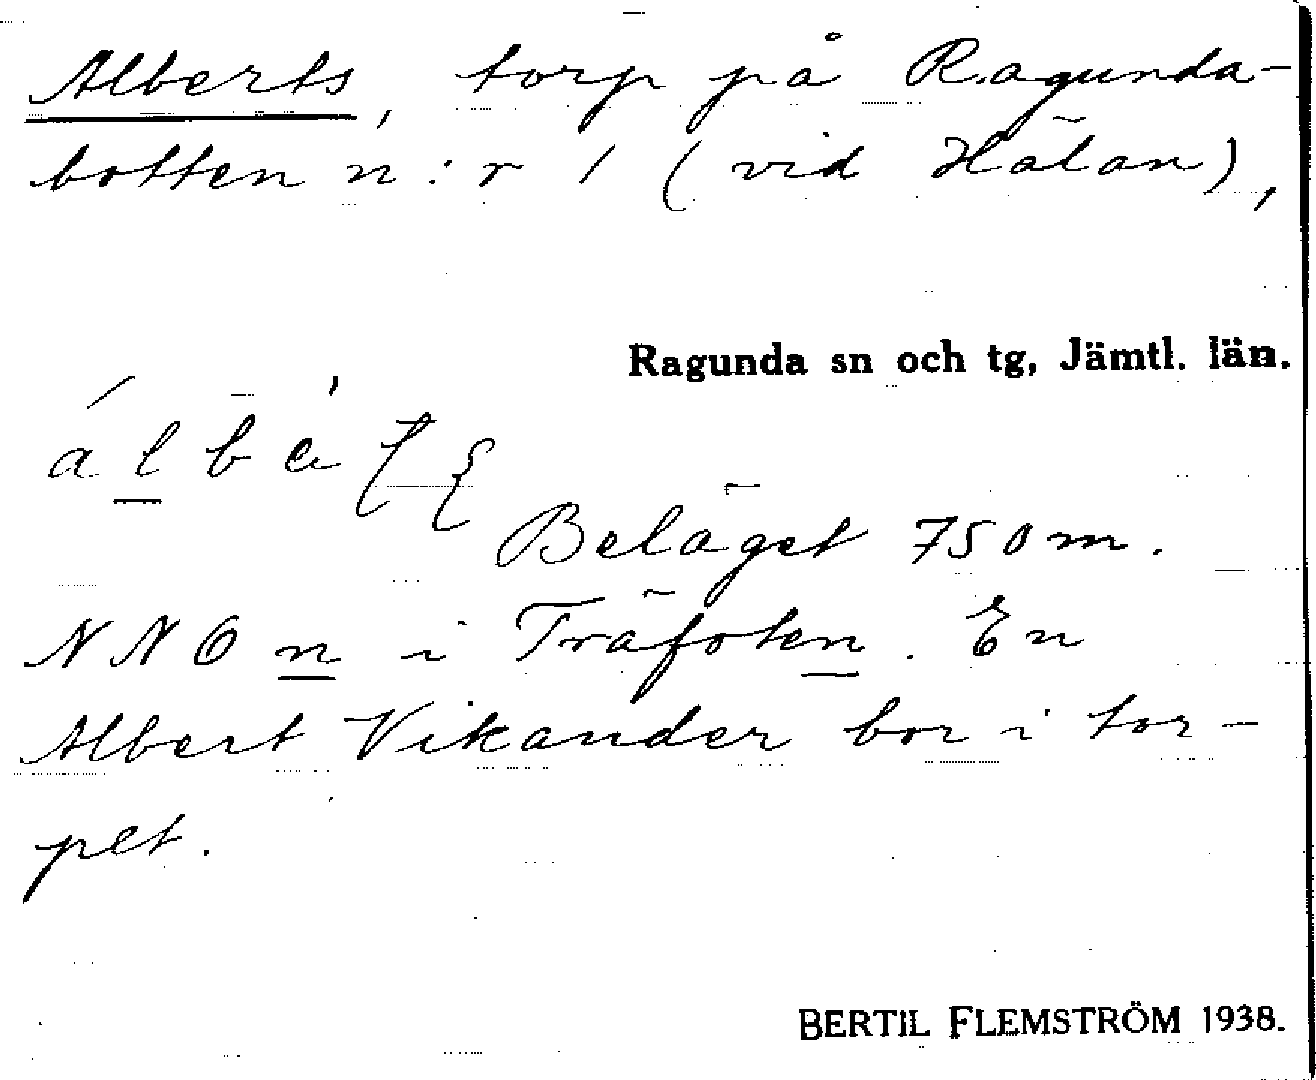 Alberts, torp på Ragunda-
botten n:r 1 (vid Hälan),
Ragunda sn och tg, Jämtl. län.
Beläget 750 m.
NNO n i Träfoten. En
Albert Vikander bor i tor-
pet.
BERTIL FLEMSTRÖM 1938.